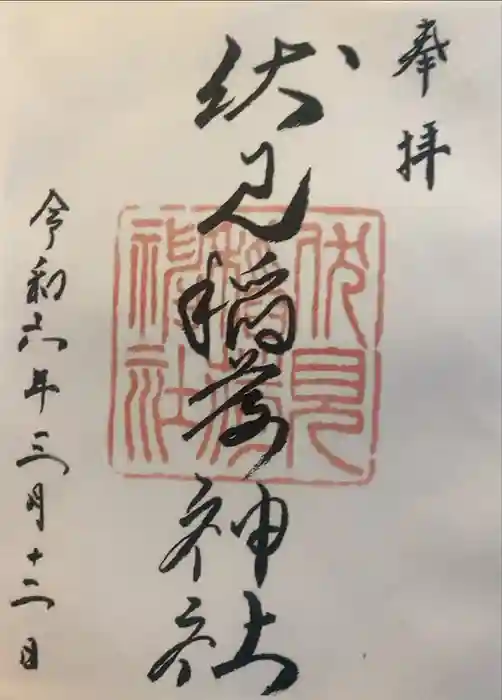 奉拝
伏見稲荷神社
伏見
稲荷
神社
令和六年三月十二日